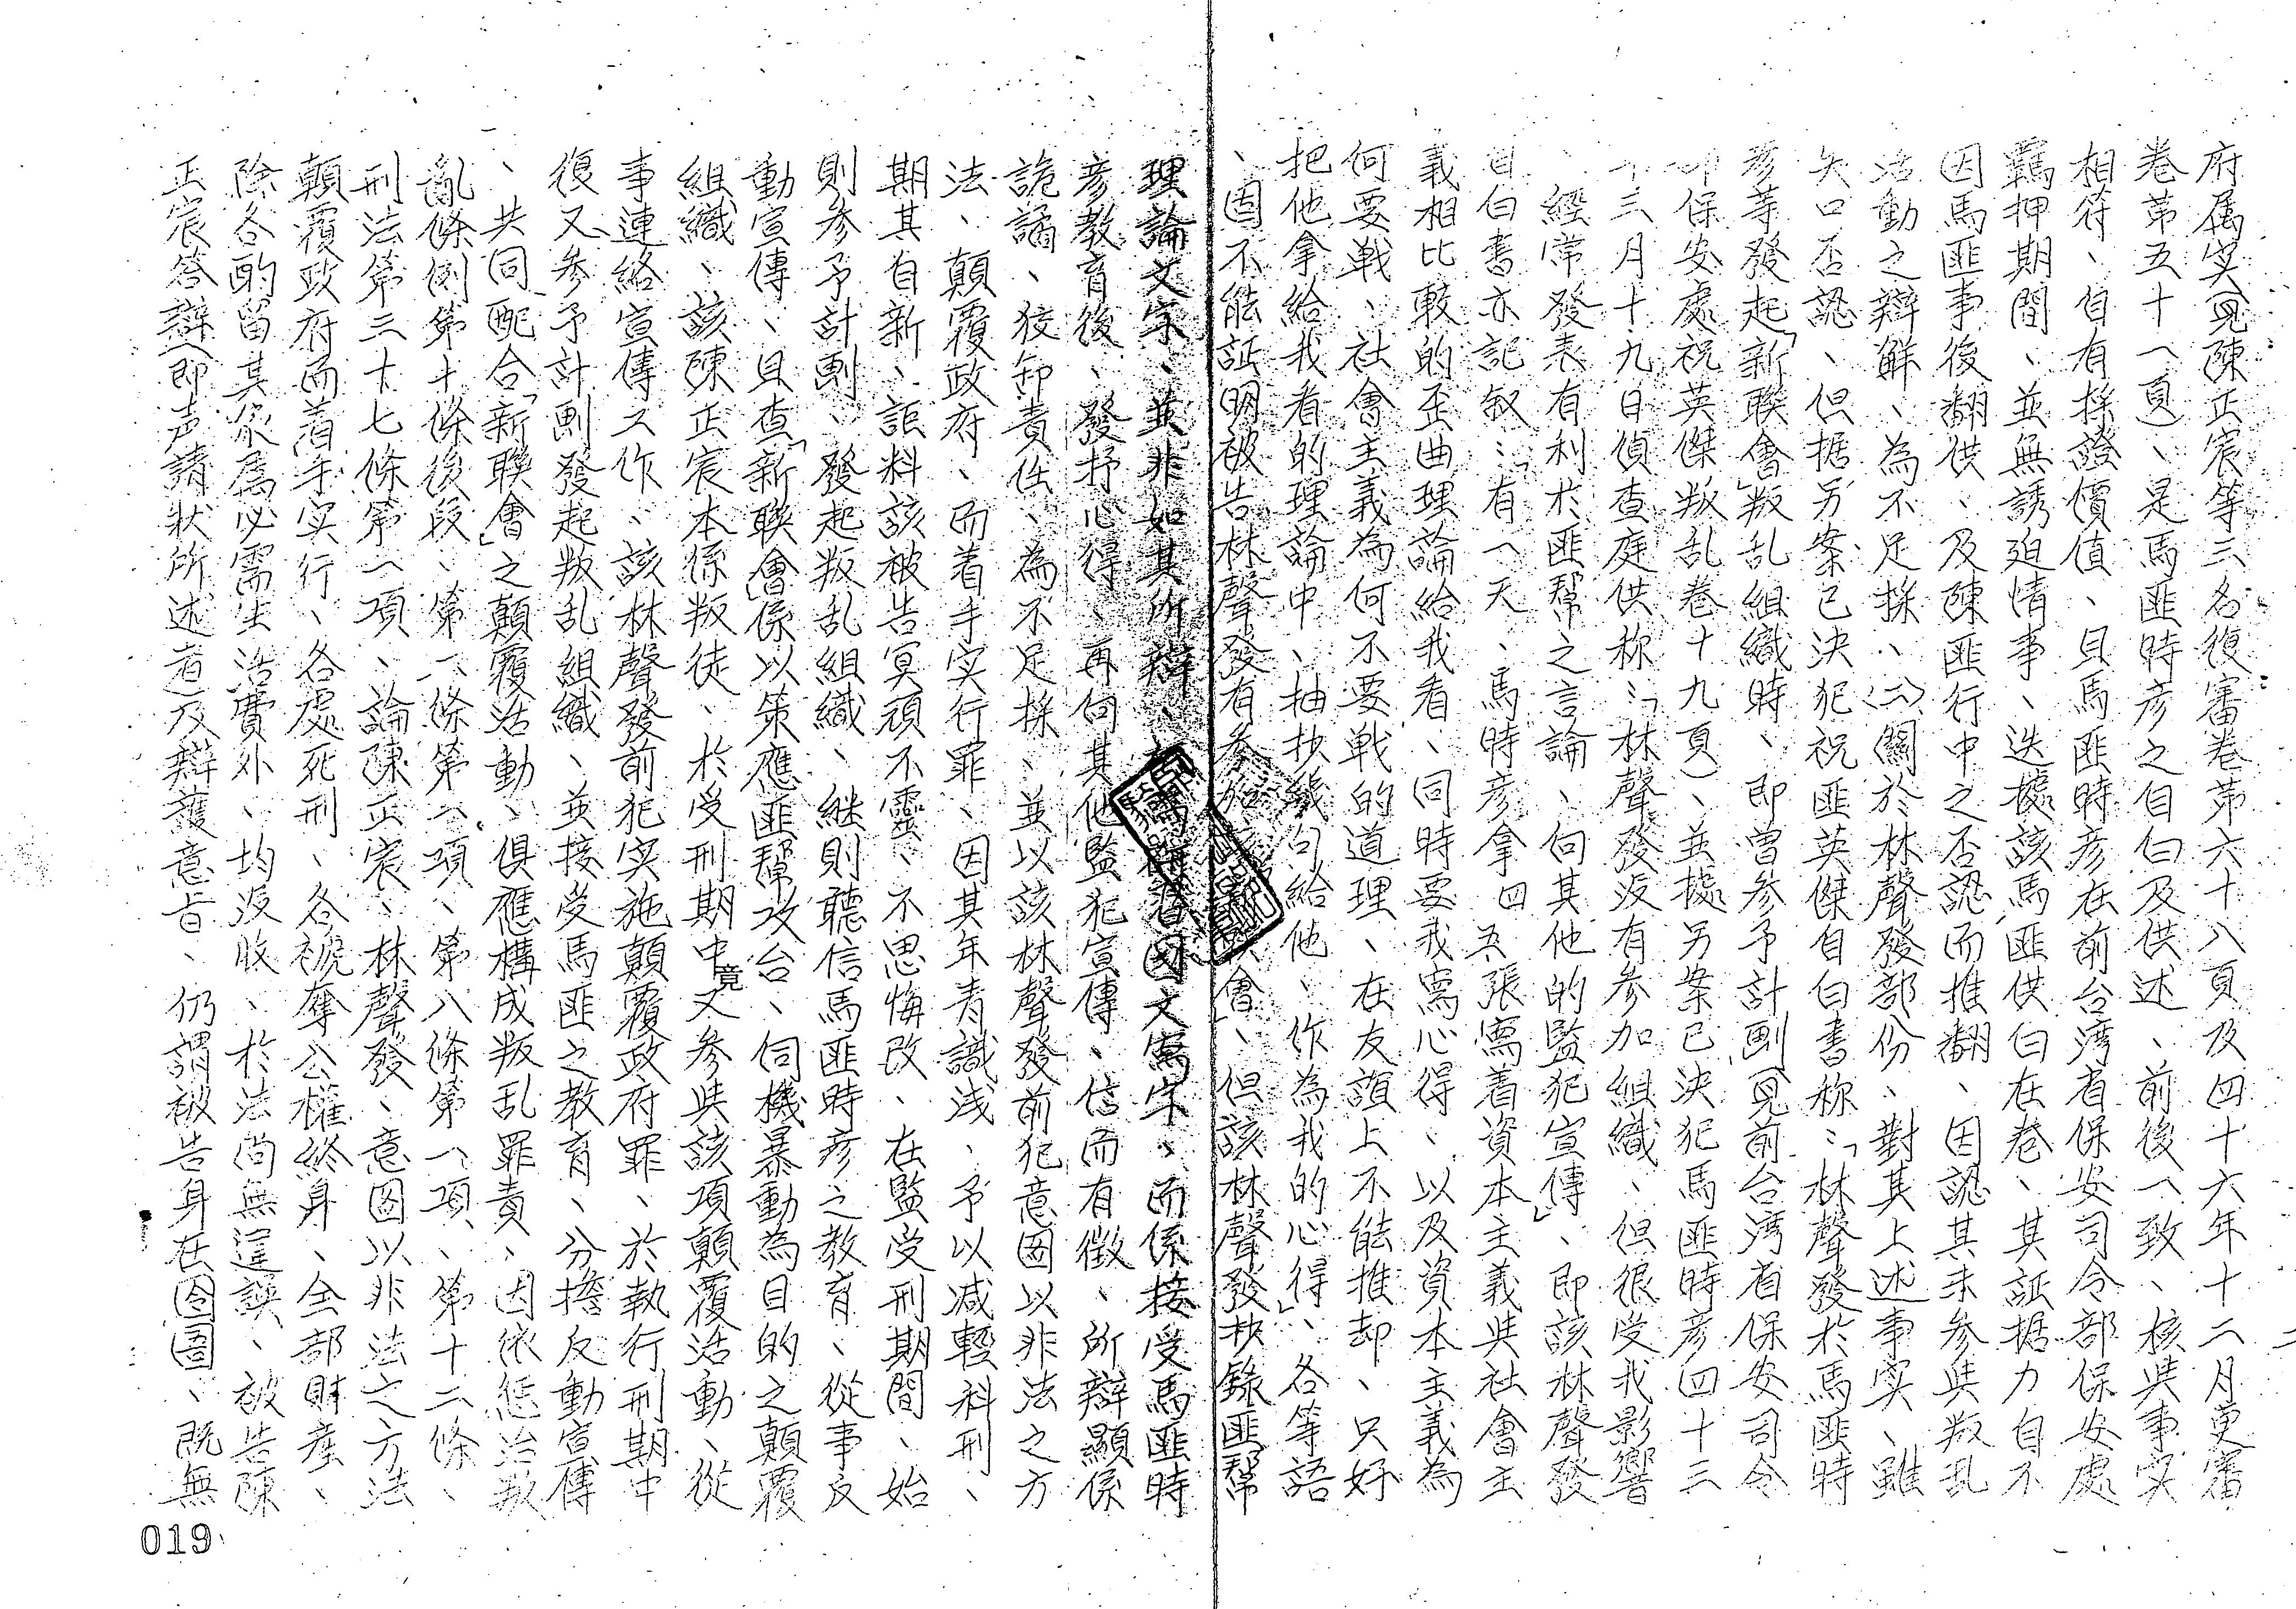 府属实(見陳正宸等三名復審卷第六十八頁及四十六年十二月更審
卷第五十一頁)、是馬匪時彦之自白及供述、前後一致、核與事实
相符、自有採證價值、且馬匪時彦在前台湾省保安司令部保安處
羈押期間、並無誘廹情事、迭據該馬匪供白在卷、其証据力自不
因馬匪事後翻供、及陳匪行中之否認而推翻、因認其未参與叛乱
活動之辯解、為不足採、(二)關於林聲發部份、對其上述事实、雖
矢口否認、但据另案已決犯祝匪英傑自白書称:「林聲發於馬匪時
彦等發起「新聯會」叛乱組織時、即曽参予計劃(見前台湾省保安司令
部保安處祝英傑叛乱卷十九頁)、並據另案已決犯馬匪時彦四十三
年三月十九日偵查庭供称:「林聲發没有参加組織、但很受我影響
、經常發表有利於匪幫之言論、向其他的監犯宣傳」、即該林聲發
自白書亦記叙:「有一天、馬時彦拿四五張寫着資本主義與社會主
義相比較的歪曲理論給我看、同時要我寫心得、以及資本主義為
何要戰、社會主義為何不要戰的道理、在友誼上不能推却、只好
把他拿給我看的理論中、抽抄幾句給他、作為我的心得」、各等語
、固不能証明被告林聲發有参加「新聯會」、但該林聲發抄錄匪幫
理論文字、並非如其所辯、因文寫字、而係接受馬匪時
彦教育後、發抒心得、再向其他監犯宣傳、信而有徵、所辯顯係
詭譎、狡卸責任、為不足採、並以該林聲發前犯意圖以非法之方
法、顛覆政府、而着手实行罪、因其年青識浅、予以减輕科刑、
期其自新、詎料該被告冥頑不靈、不思悔改、在監受刑期間、始
則参予計劃、發起叛乱組織、継則聽信馬匪時彦之教育、從事反
動宣傳、且查「新聯會」係以策應匪幫攻台、伺機暴動為目的之顛覆
組織、該陳正宸本係叛徒、於受刑期中竟又参與該項顛覆活動、從
事連絡宣傳工作、該林聲發前犯实施顛覆政府罪、於執行刑期中
復又参予計劃發起叛乱組織、並接受馬匪之教育、分擔反動宣傳
、共同配合「新聯會」之顛覆活動、俱應構成叛乱罪責、因依惩治叛
亂條例第十條後段、第一條第二項、第八條第一項、第十二條、
刑法第三十七條第一項、論陳正宸、林聲發、意圖以非法之方法
顛覆政府而着手实行、各處死刑、各褫奪公權終身、全部財產、
除各酌留其家属必需生活費外、均没收、於法尚無違誤、被告陳
正宸答辯(即声請状所述者)及辯護意旨、仍謂被告身在囹圄、既無
019